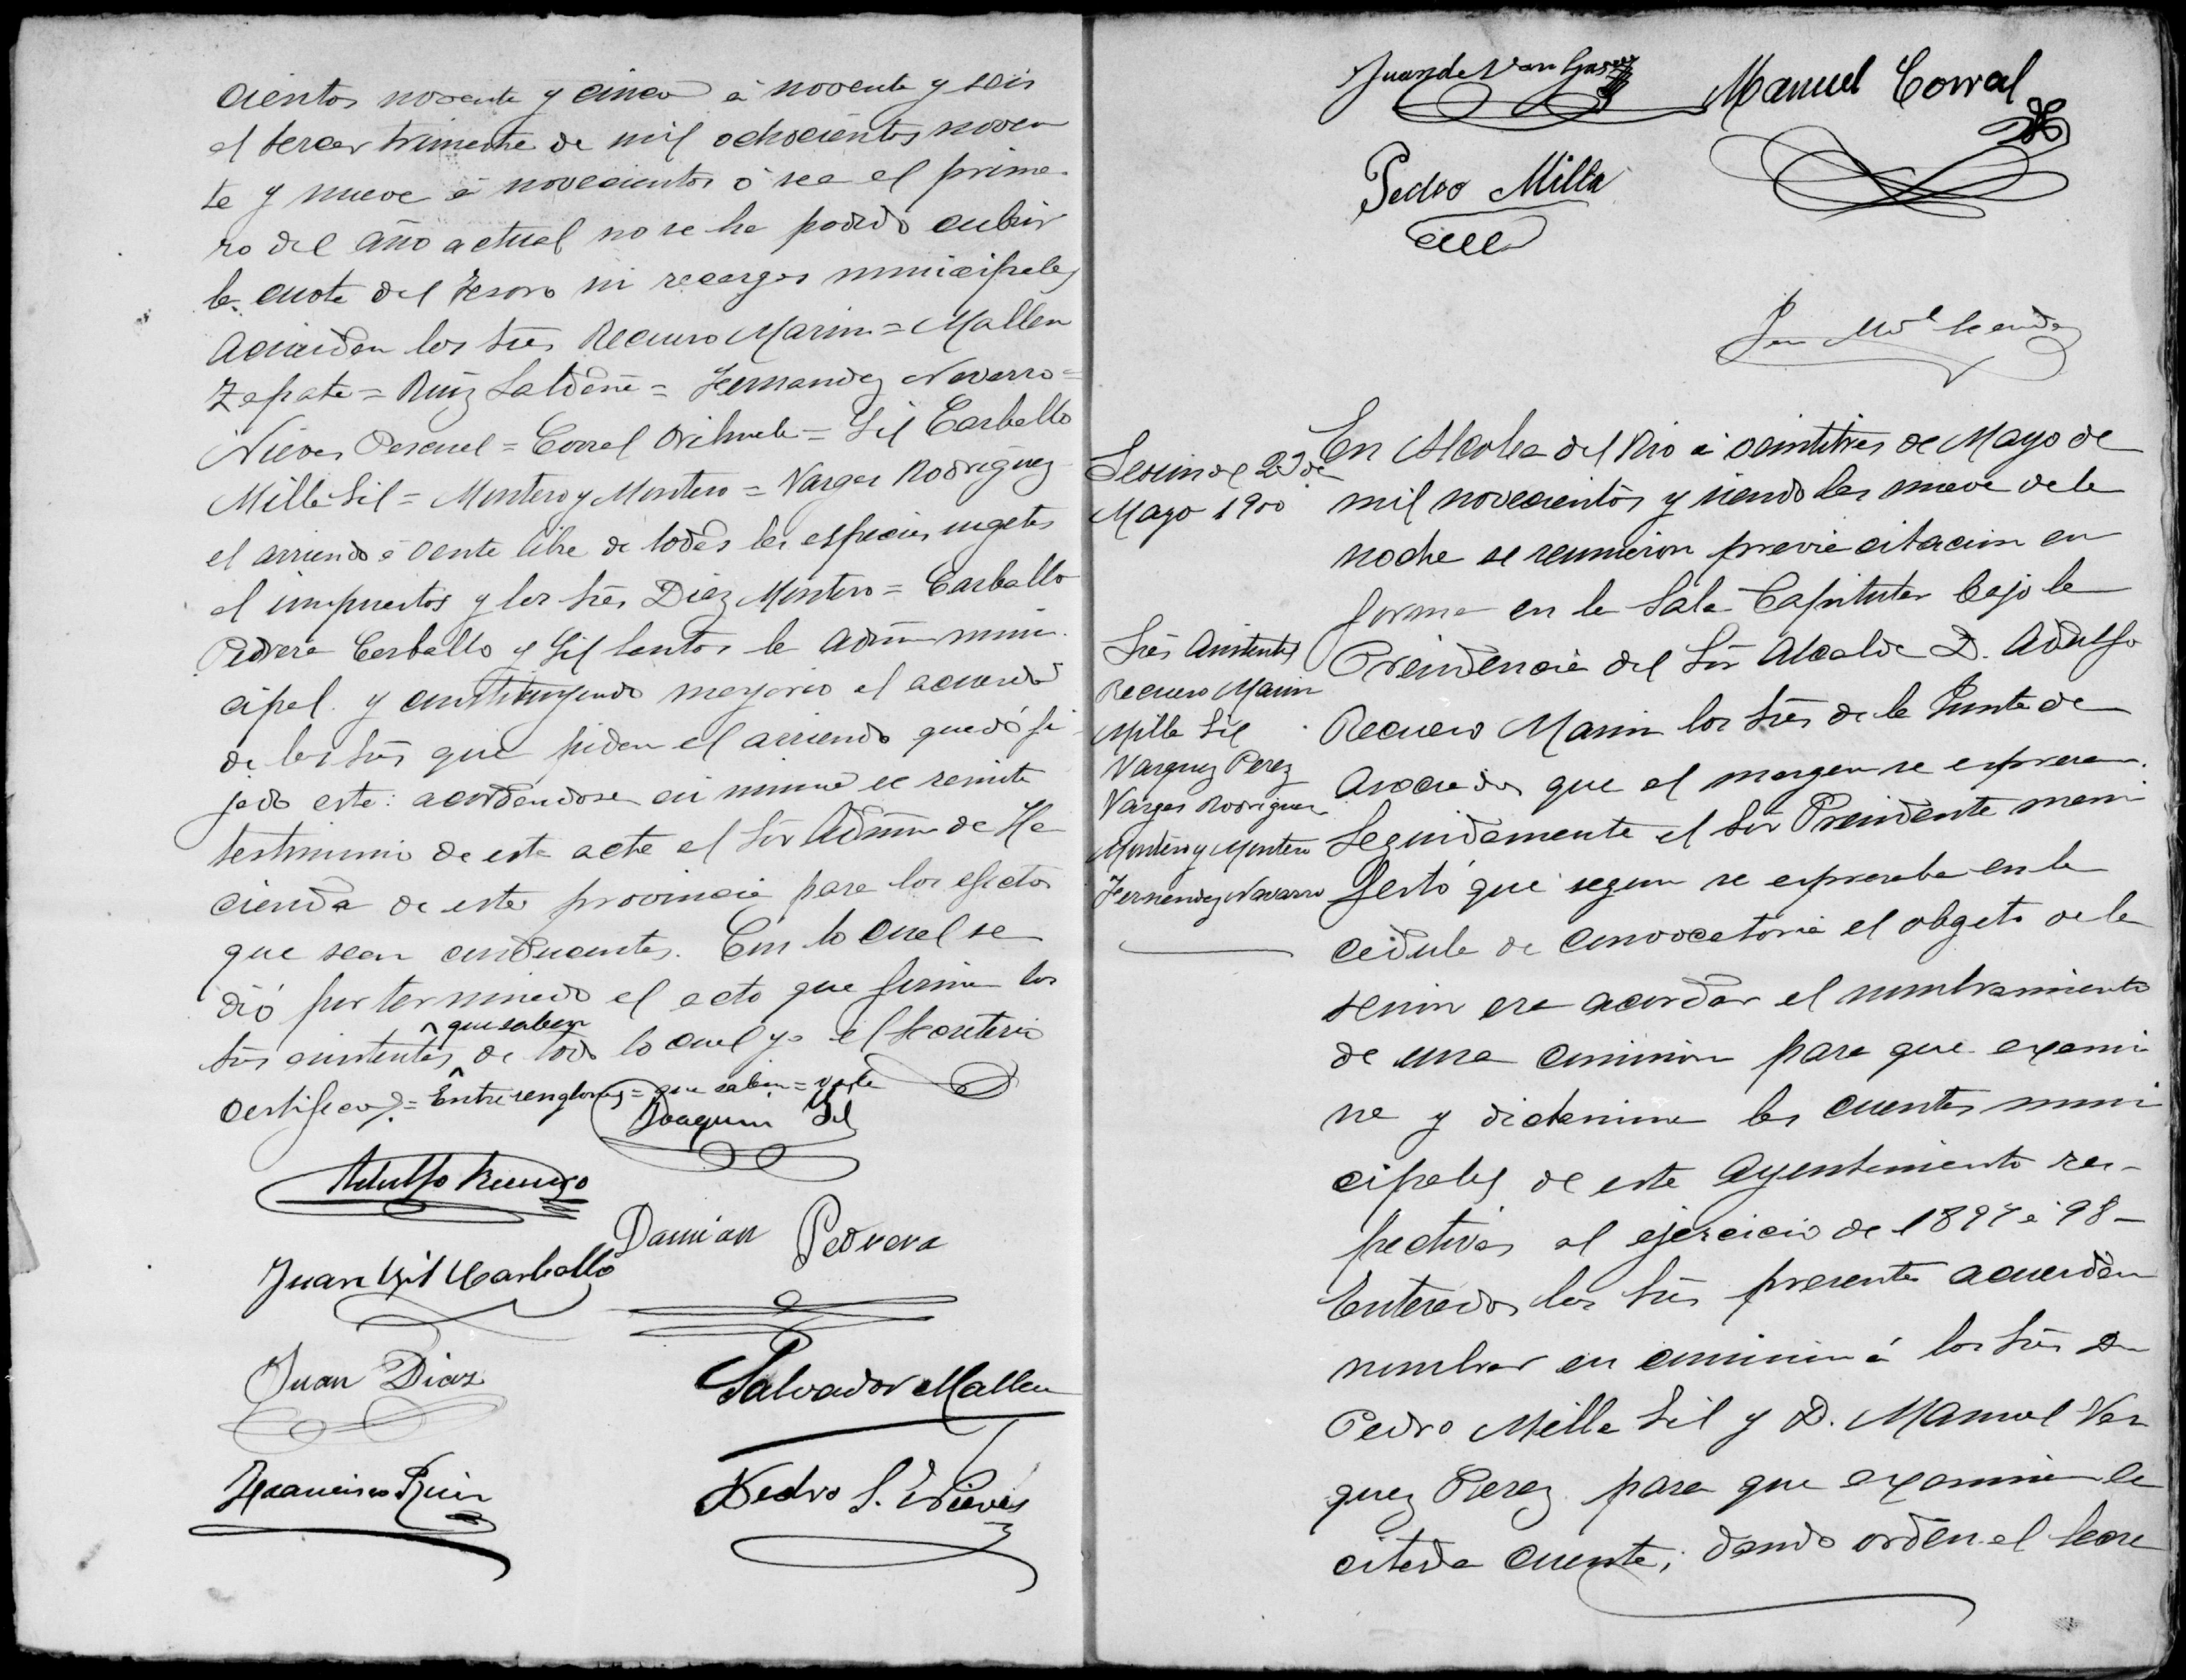 cientos noventa y cinco á noventa y seis
al tercer trimestre de mil ochocientos noven
ta y nueve á novecientos ó sea el prime-
ro del año actual no se ha podido cubrir
la cuota del Tesoro ni recargos municipales
Acuerdan los Sres Recuero Marin = Mallen
Zapata = Ruiz Saldaña = Fernandez Navarro =
Nieves Pascual = Corral Orihuela = Gil Carballo
Milla Gil = Montero y Montero = Vargas Rodriguez
el arriendo á venta libre de todas las especies sugetas
al impuestos y los Sres Diaz Montero = Carballo
Pedrera Carballo y Gil Santos la admon muni-
cipal y constituyendo mayoria el acuerdo
de los Sres que piden el arriendo quedó fi
jado este: acordandose asi mismo se remita
testimonio de esta acta al Sor Admon de Ha
cienda de esta provincia para los efectos
que sean conducentes. Con lo cual se
dió por terminado el acto que firman los
que saben
Sres asistentes, de todo lo cual yo el Secretario
certifico. = Entre renglones = que saben = vale
Joaquin Gil
Adolfo Recuero
Damian Pedrera
Juan Gil Carballo
Juan Diaz
Salvador Mallen
Francisco Ruiz
Pedro S. Nieves
Juan de Vargas
Manuel Corral
Pedro Milla
Sesion del 23 de
Mayo 1900
Sres Asistentes
Recuero Marin
Milla Gil
Vazquez Perez
Vargas Rodriguez
Montero y Montero
Fernandez Navarro
En Alcolea del Rio á veintitres de Mayo de
mil novecientos y siendo las nueve de la
noche se reunieron previa citacion en
forma en la Sala Capitular bajo la
Presidencia del Sor Alcalde D. Adolfo
Recuero Marin los Sres de la Junta de
Asociados que al margen se expresan.
Seguidamente el Sor Presidente mani
festó que segun se expresaba en la
cedula de convocatoria el objeto de la
sesion era acordar el nombramiento
de una comision para que exami
ne y dictamine las cuentas muni
cipales de este Ayuntamiento res-
pectivas al ejercicio de 1897 á 98 -
Enterados los Sres presentes acuerdan
nombrar en comision á los Sres Dn
Pedro Milla Gil y D. Manuel Vaz
quez Perez para que examinen la
citada cuenta; dando orden al Secre